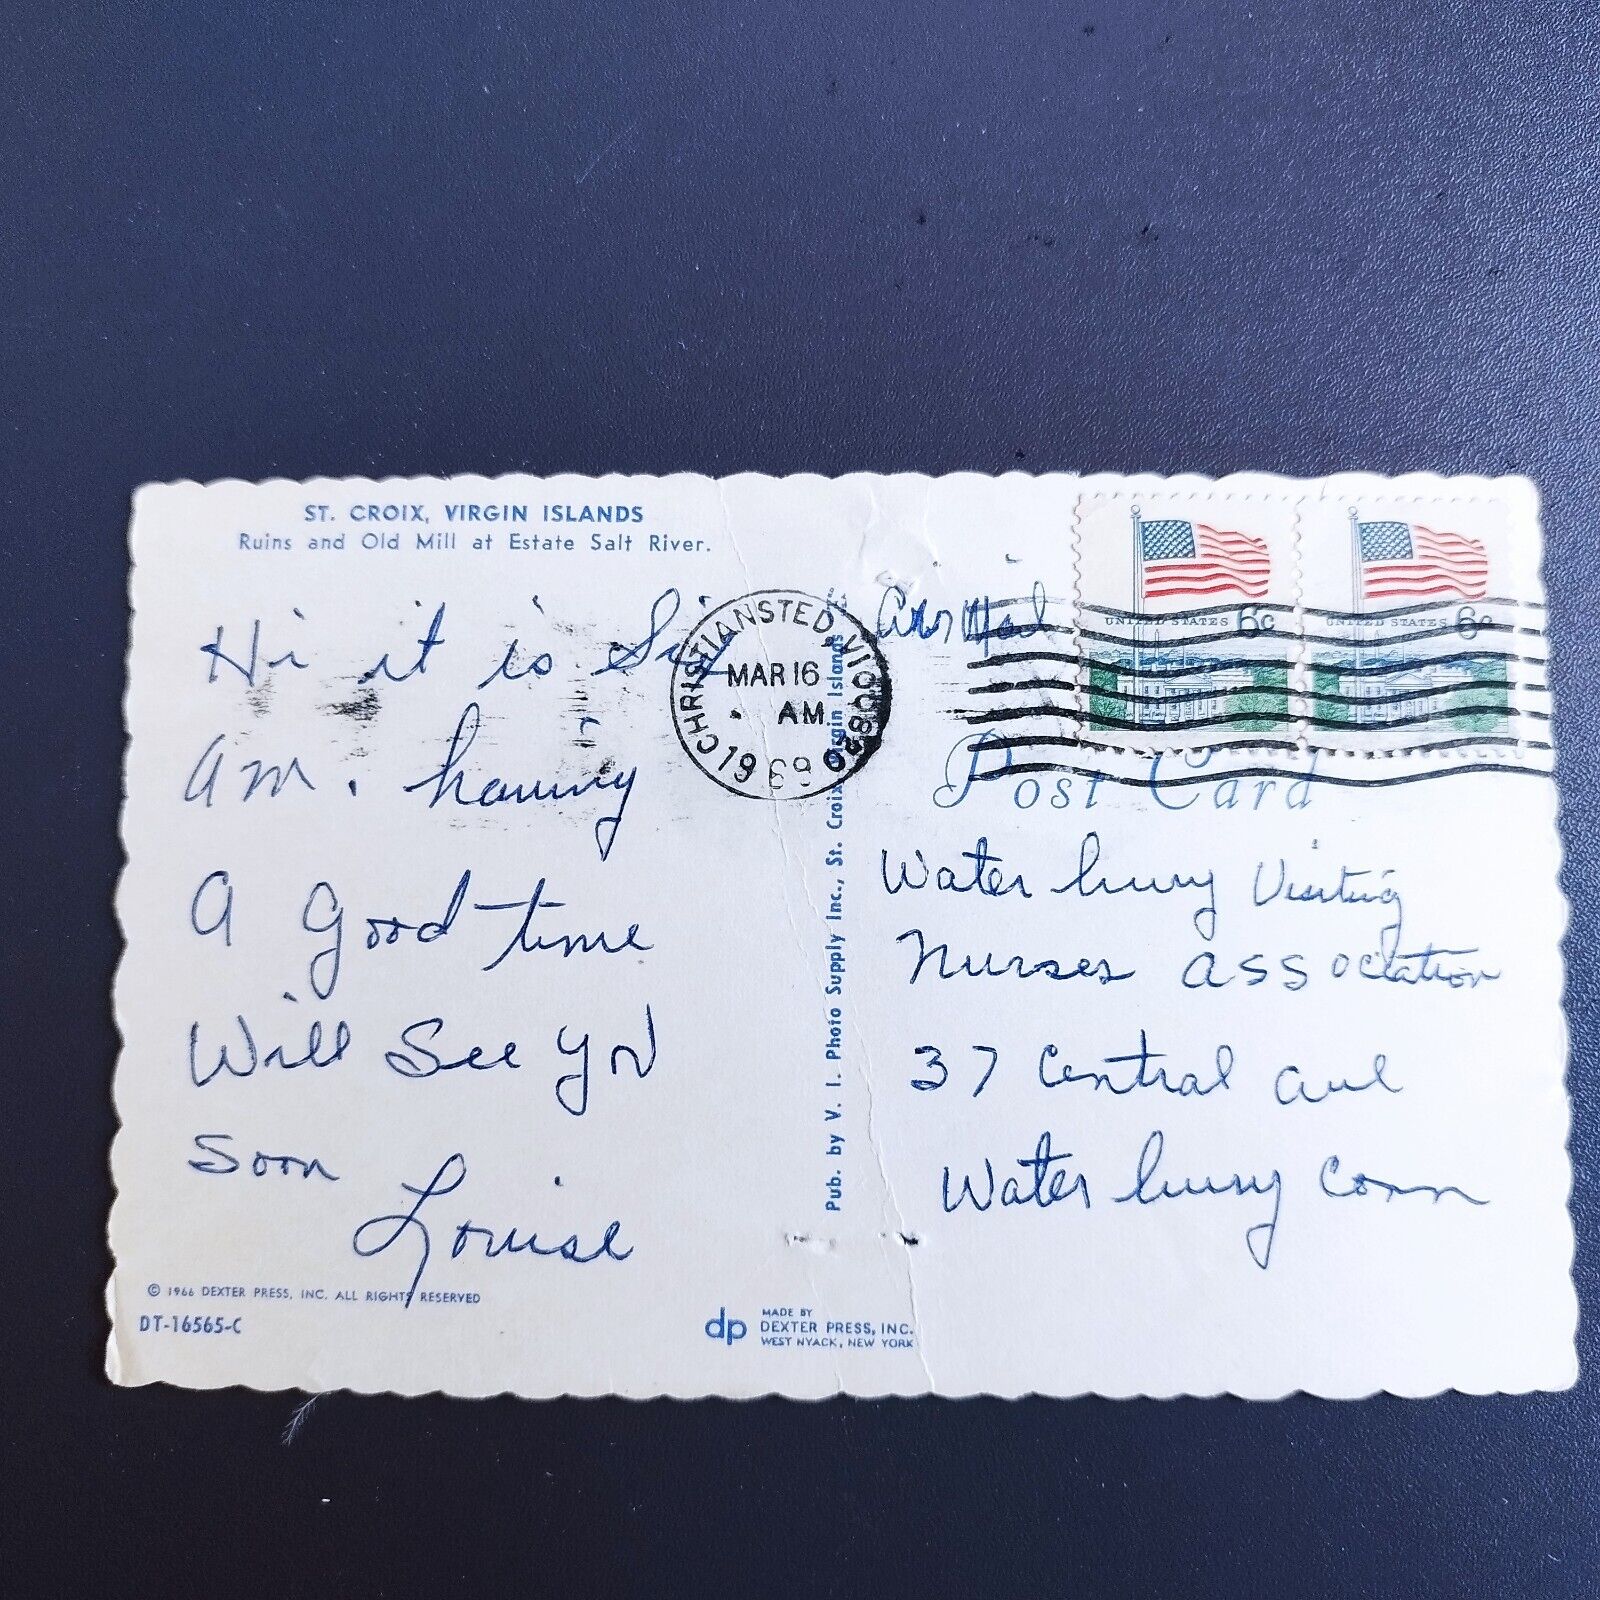 ST. CROIX, VIRGIN ISLANDS
Ruins and Old Mill at Estate Salt River.
Hi it is Six
AM. having
A Good time
Will See You
Soon
Louise
© 1966 DEXTER PRESS, INC. ALL RIGHTS RESERVED
DT-16565-C
dp MADE BY
DEXTER PRESS, INC.
WEST NYACK, NEW YORK
Pub. by V. I. Photo Supply Inc., St. Croix, Virgin Islands
CHRISTIANSTED, VI 00820
MAR 16
AM
1969
Air Mail
UNITED STATES 6c
UNITED STATES 6c
Post Card
Water bury Visiting
Nurses Association
37 Central Ave
Water bury Conn